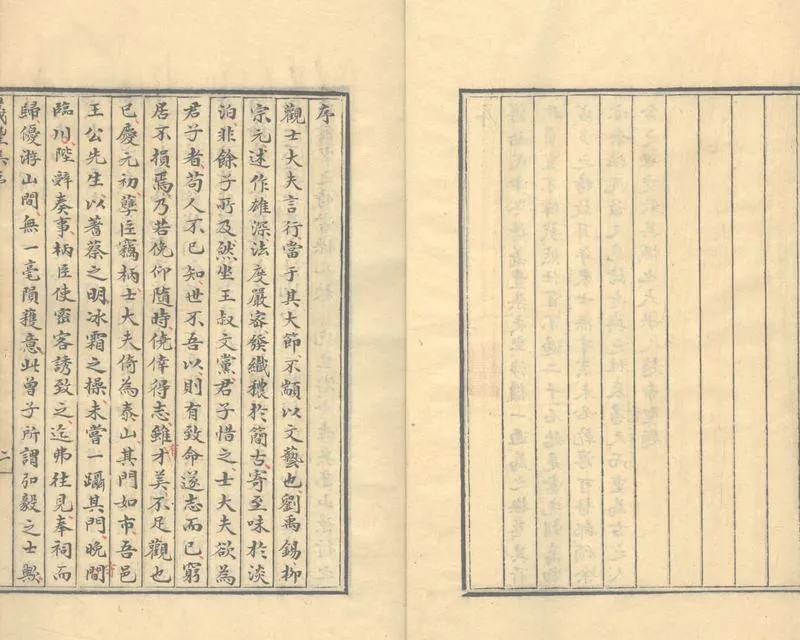 序
觀士大夫言行當于其大節不顓以文藝也劉禹錫柳
宗元述作雄深法度嚴密發纖穠於簡古寄至味於淡
泊非餘子所及然坐王叔文黨君子惜之士大夫欲為
君子者苟人不已知世不吾以則有致命遂志而已窮
居不損焉乃若俛仰隨時僥倖得志雖才美不足觀也
已慶元初孽臣竊柄士大夫倚為泰山其門如市吾邑
王公先生以蓍蔡之明冰霜之操未嘗一躡其門晚間
臨川陛辭奏事柄臣使密客誘致之迄弗往見奉祠而
歸優游山間無一毫隕穫意此曾子所謂弘毅之士歟
二